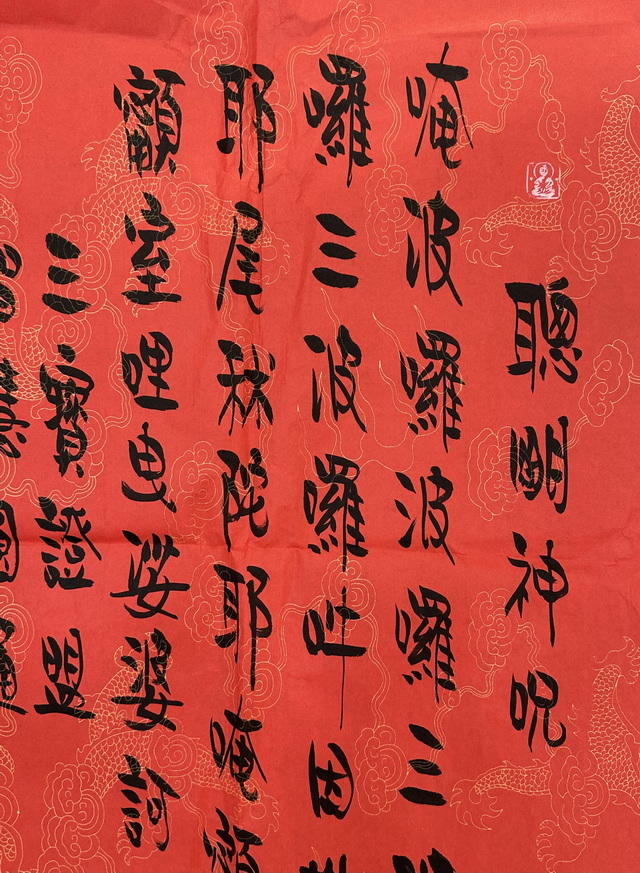 聰明神咒
唵波囉波囉三
囉三波囉吽因
耶尾秫陀耶唵
室哩曳娑婆訶
三寶證盟